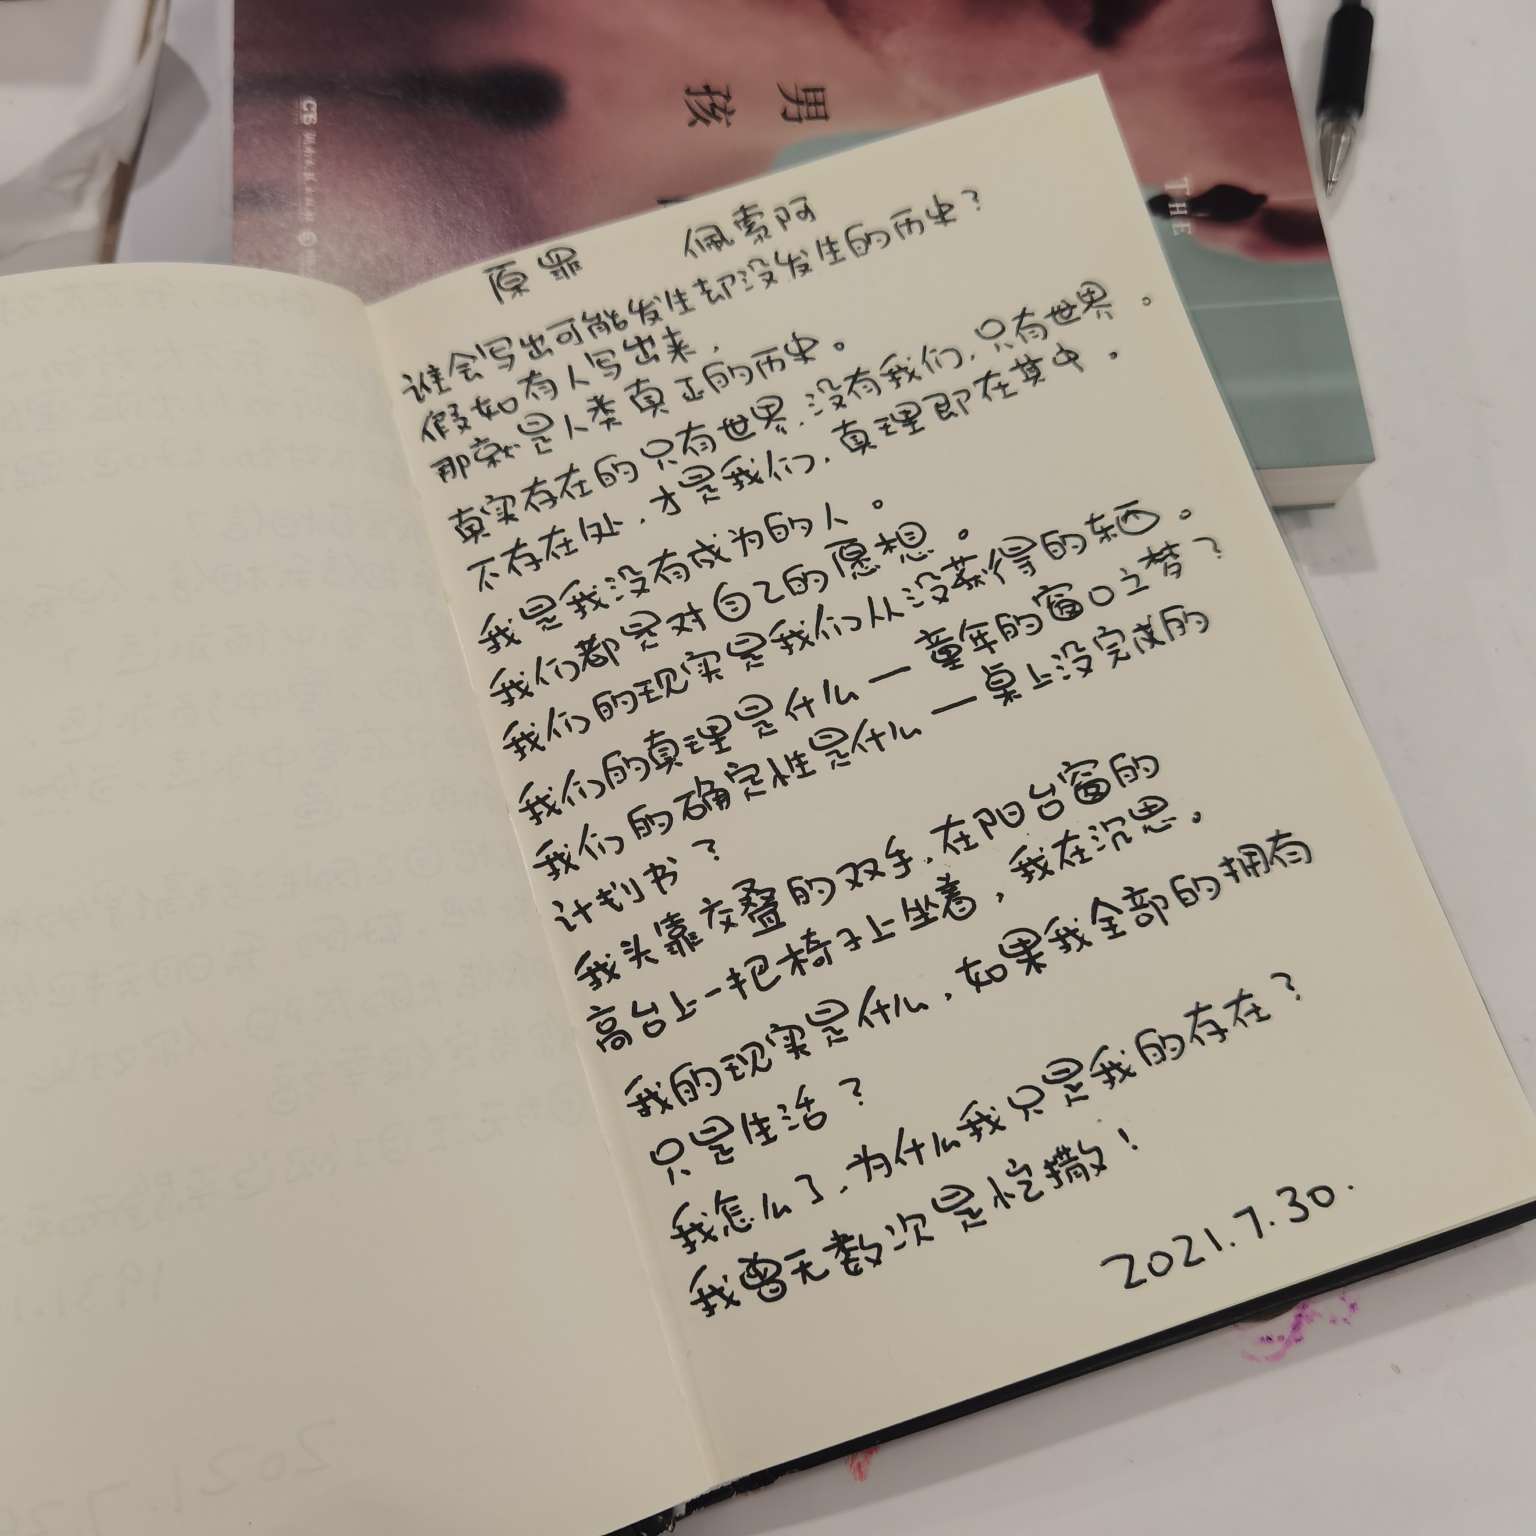 男孩
THE
原罪 佩索阿
谁会写出可能发生却没发生的历史？
假如有人写出来，
那就是人类真正的历史。
真实存在的只有世界，没有我们，只有世界。
不存在处，才是我们，真理即在其中。
我是我没有成为的人。
我们都是对自己的愿想。
我们的现实是我们从没获得的东西。
我们的真理是什么一童年的窗口之梦？
我们的确定性是什么一桌上没完成的
计划书？
我头靠交叠的双手，在阳台窗的
高台上一把椅子上坐着，我在沉思。
我的现实是什么，如果我全部的拥有
只是生活？
我怎么了，为什么我只是我的存在？
我曾无数次是恺撒！
2021.7.30.